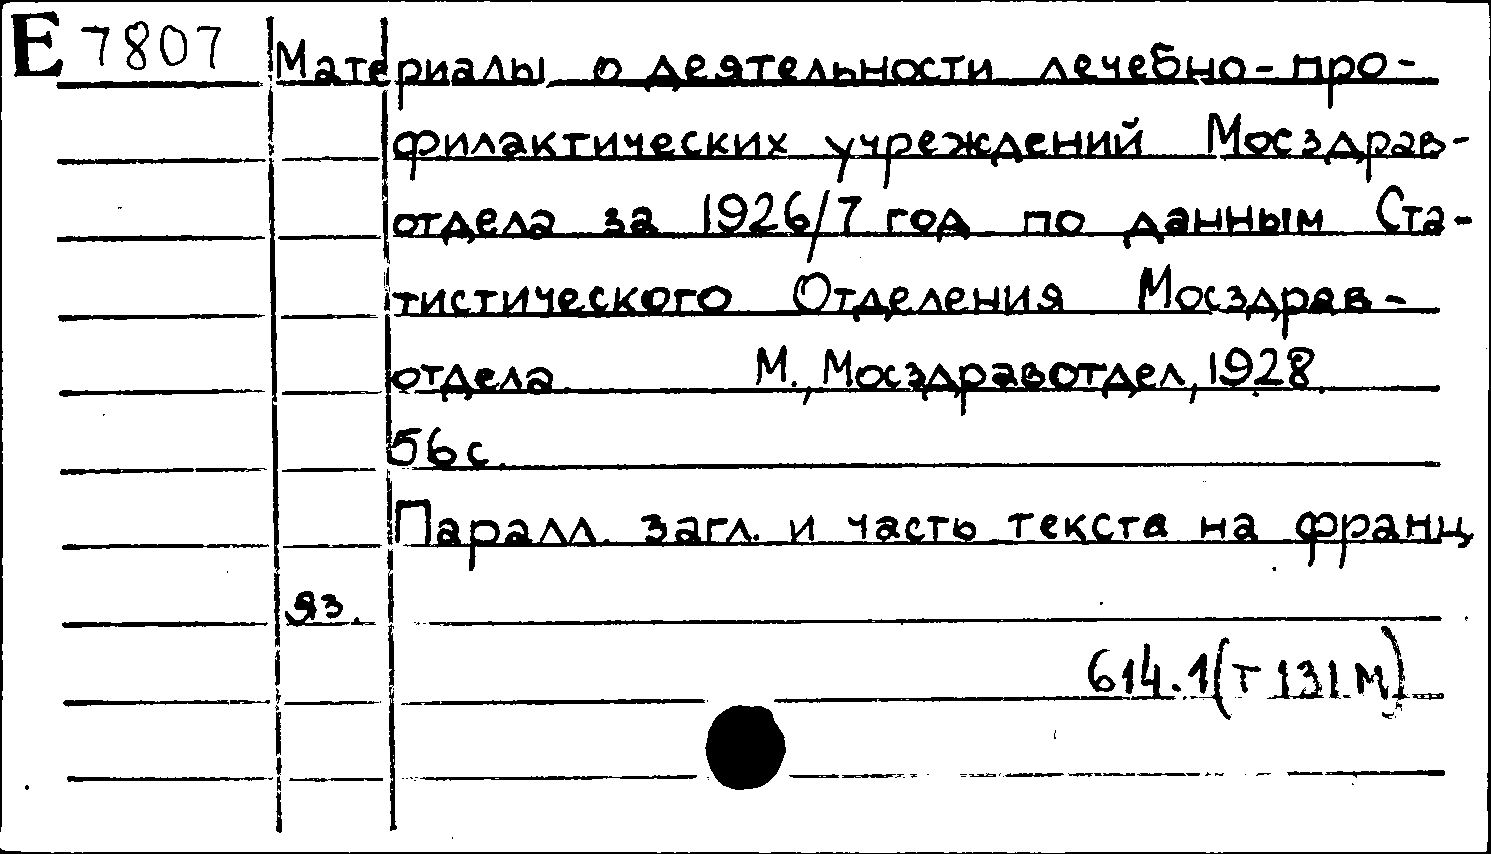 E 7807 Материалы о деятельности лечебно-про-
филактических учреждений Мосздрав-
отдела за 1926/7 год по данным Ста-
тистического Отделения Мосздрав-
отдела. М., Мосздравотдел, 1928.
56 с.
Паралл. загл. и часть текста на франц
яз.
614.1(Т131М)